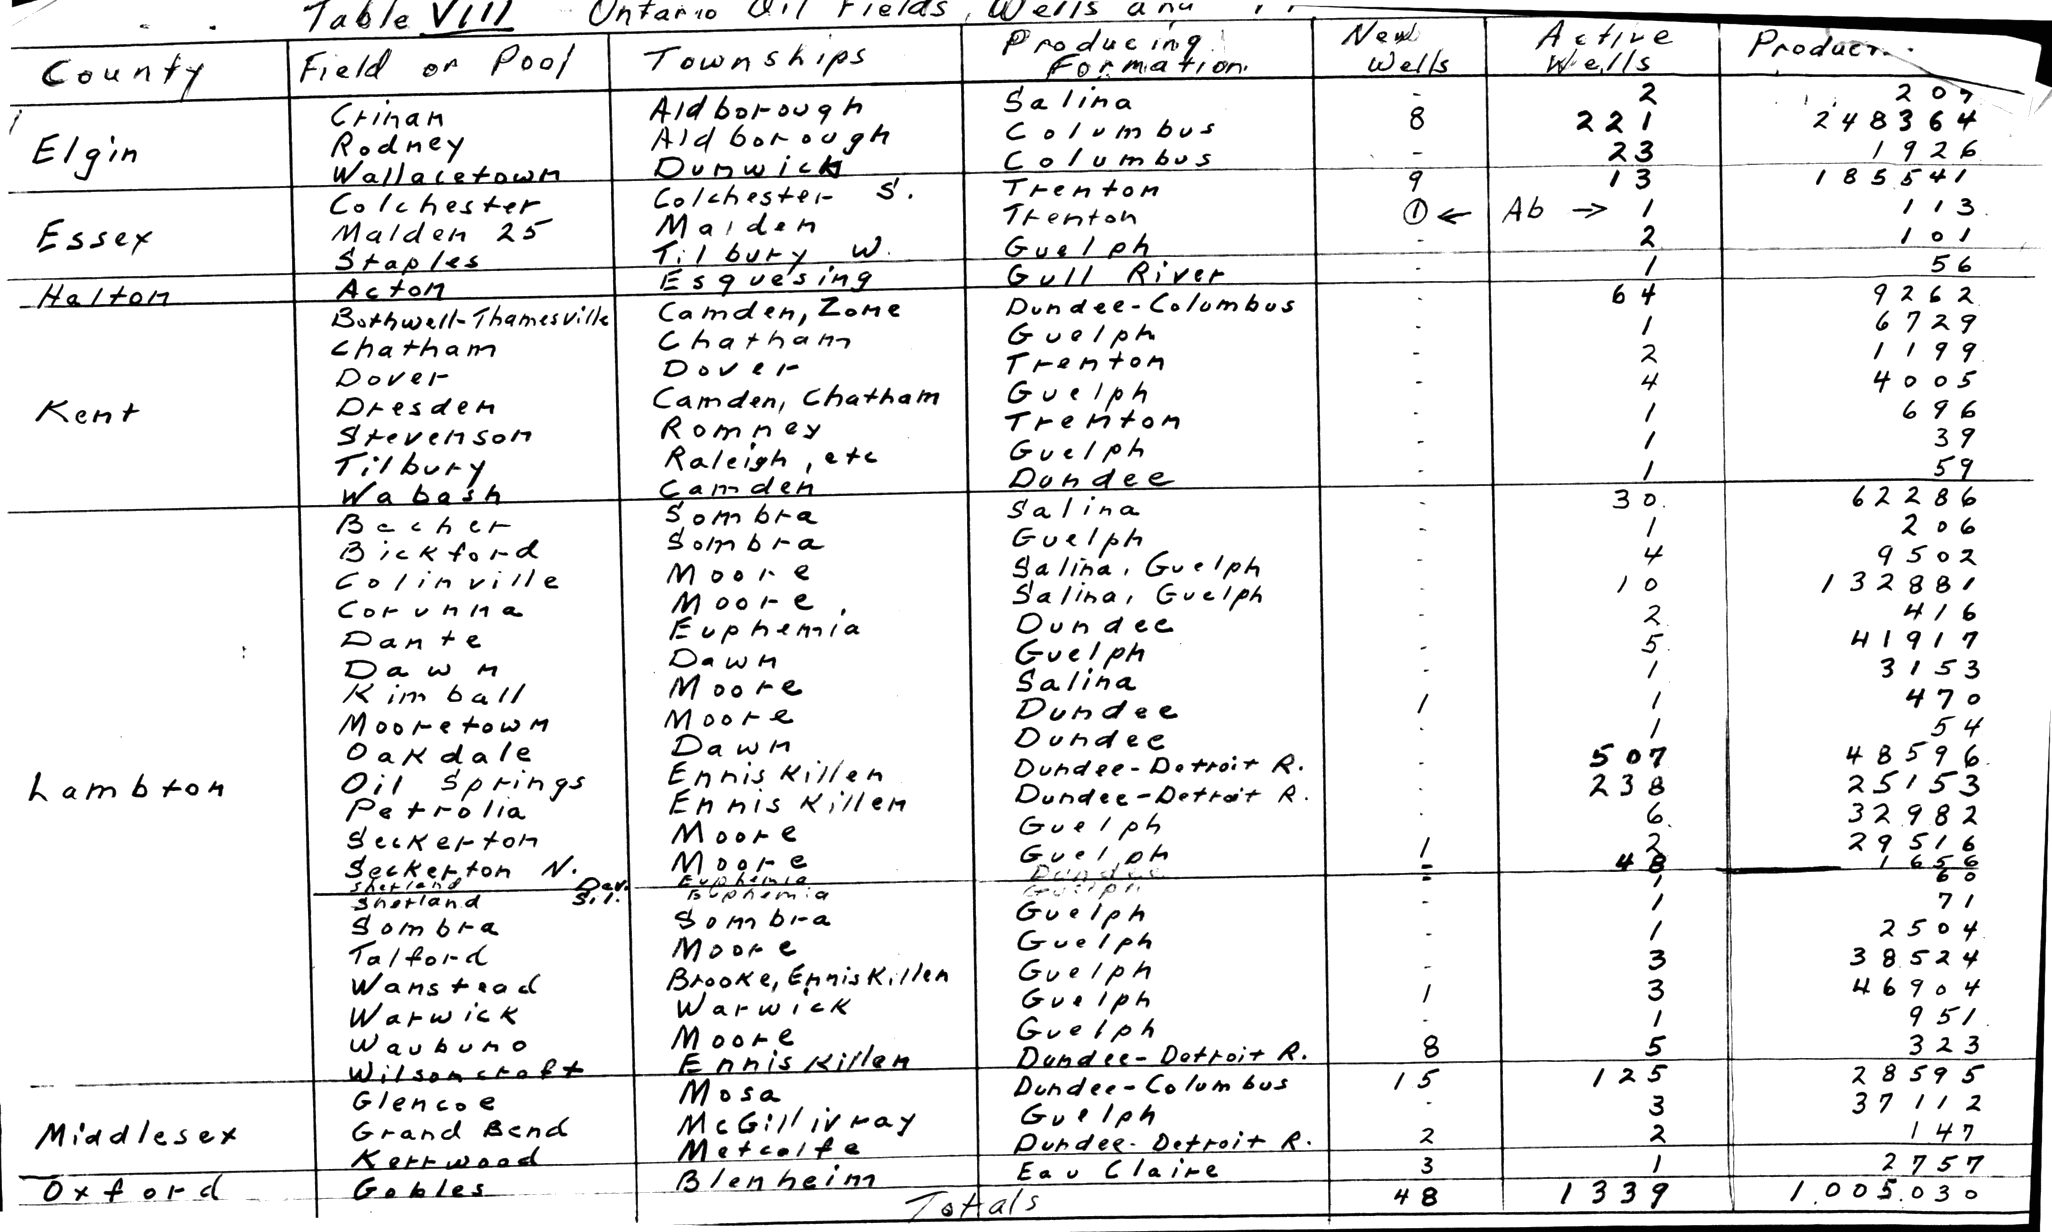 Table VIII Ontario Oil Fields, Wells and
County Field or Pool Townships Producing Formation New Wells Active Wells Product
Elgin Crinan Aldborough Salina - 2 207
Rodney Aldborough Columbus 8 221 248364
Wallacetown Dunwich Columbus - 23 1926
Essex Colchester Colchester S. Trenton 9 13 185541
Malden 25 Malden Trenton ① ← Ab → 1 113
Staples Tilbury W. Guelph - 2 101
Halton Acton Esquesing Gull River - 1 56
Kent Bothwell-Thamesville Camden, Zone Dundee-Columbus - 64 9262
Chatham Chatham Guelph - 1 6729
Dover Dover Trenton - 2 1199
Dresden Camden, Chatham Guelph - 4 4005
Stevenson Romney Trenton - 1 696
Tilbury Raleigh, etc Guelph - 1 39
Wabash Camden Dundee - 1 59
Lambton Becher Sombra Salina - 30 62286
Bickford Sombra Guelph - 1 206
Colinville Moore Salina, Guelph - 4 9502
Corunna Moore Salina, Guelph - 10 132881
Dante Euphemia Dundee - 2 416
Dawn Dawn Guelph - 5 41917
Kimball Moore Salina - 1 3153
Mooretown Moore Dundee 1 1 470
Oakdale Dawn Dundee - 1 54
Oil Springs Enniskillen Dundee-Detroit R. - 507 48596
Petrolia Enniskillen Dundee-Detroit R. - 238 25153
Seckerton Moore Guelph - 6 32982
Seckerton N. Moore Guelph 1 2 29516
Shetland Dev. Euphemia Dundee - 48 1656
Shetland Sil. Euphemia Guelph - 1 60
Sombra Sombra Guelph - 1 71
Talford Moore Guelph - 1 2504
Wanstead Brooke, Enniskillen Guelph - 3 38524
Warwick Warwick Guelph 1 3 46904
Waubuno Moore Guelph - 1 951
Wilsoncroft Enniskillen Dundee-Detroit R. 8 5 323
Middlesex Glencoe Mosa Dundee-Columbus 15 125 28595
Grand Bend McGillivray Guelph - 3 37112
Kerrwood Metcalfe Dundee-Detroit R. 2 2 147
Oxford Gobles Blenheim Eau Claire 3 1 2757
Totals 48 1339 1.005.030